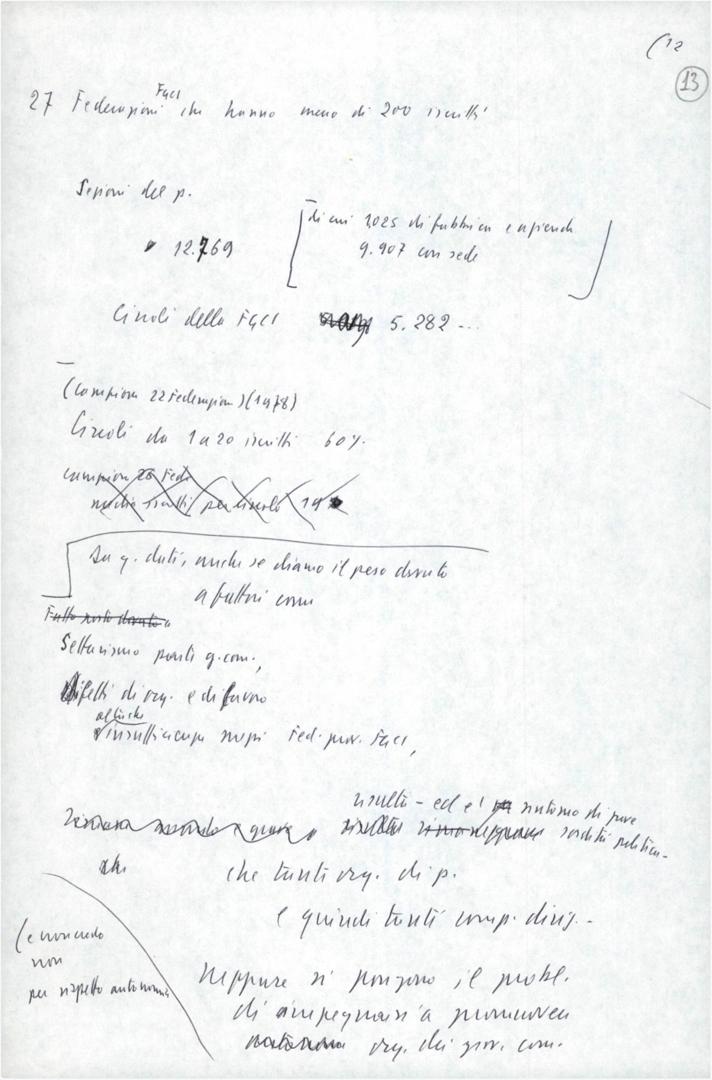 (12
13
27 Federazioni FGCI che hanno meno di 200 iscritti
Sezioni del p.
12.769
di cui 1.025 di fabbrica e azienda
9.907 con sede
Circoli della FGCI 5.282 ...
(Campione 22 Federazioni) (1978)
Circoli da 1 a 20 iscritti 60%
campione Fed
media iscritti per circolo 19
Da q. dati, anche se diamo il peso dovuto
a fattori come
Fatto
Settarismo g. com.,
Difetti di org. e di lavoro
altriché
insufficienza Fed. prov. FGCI,
risulta - ed e' sintomo di
sordità politica -
che
che tanti org. di p.
e quindi tanti comp. dirig. -
(e non credo
non
per rispetto autonomia
Neppure si pongono il probl.
di impegnarsi a promuovere
org. dei giov. com.